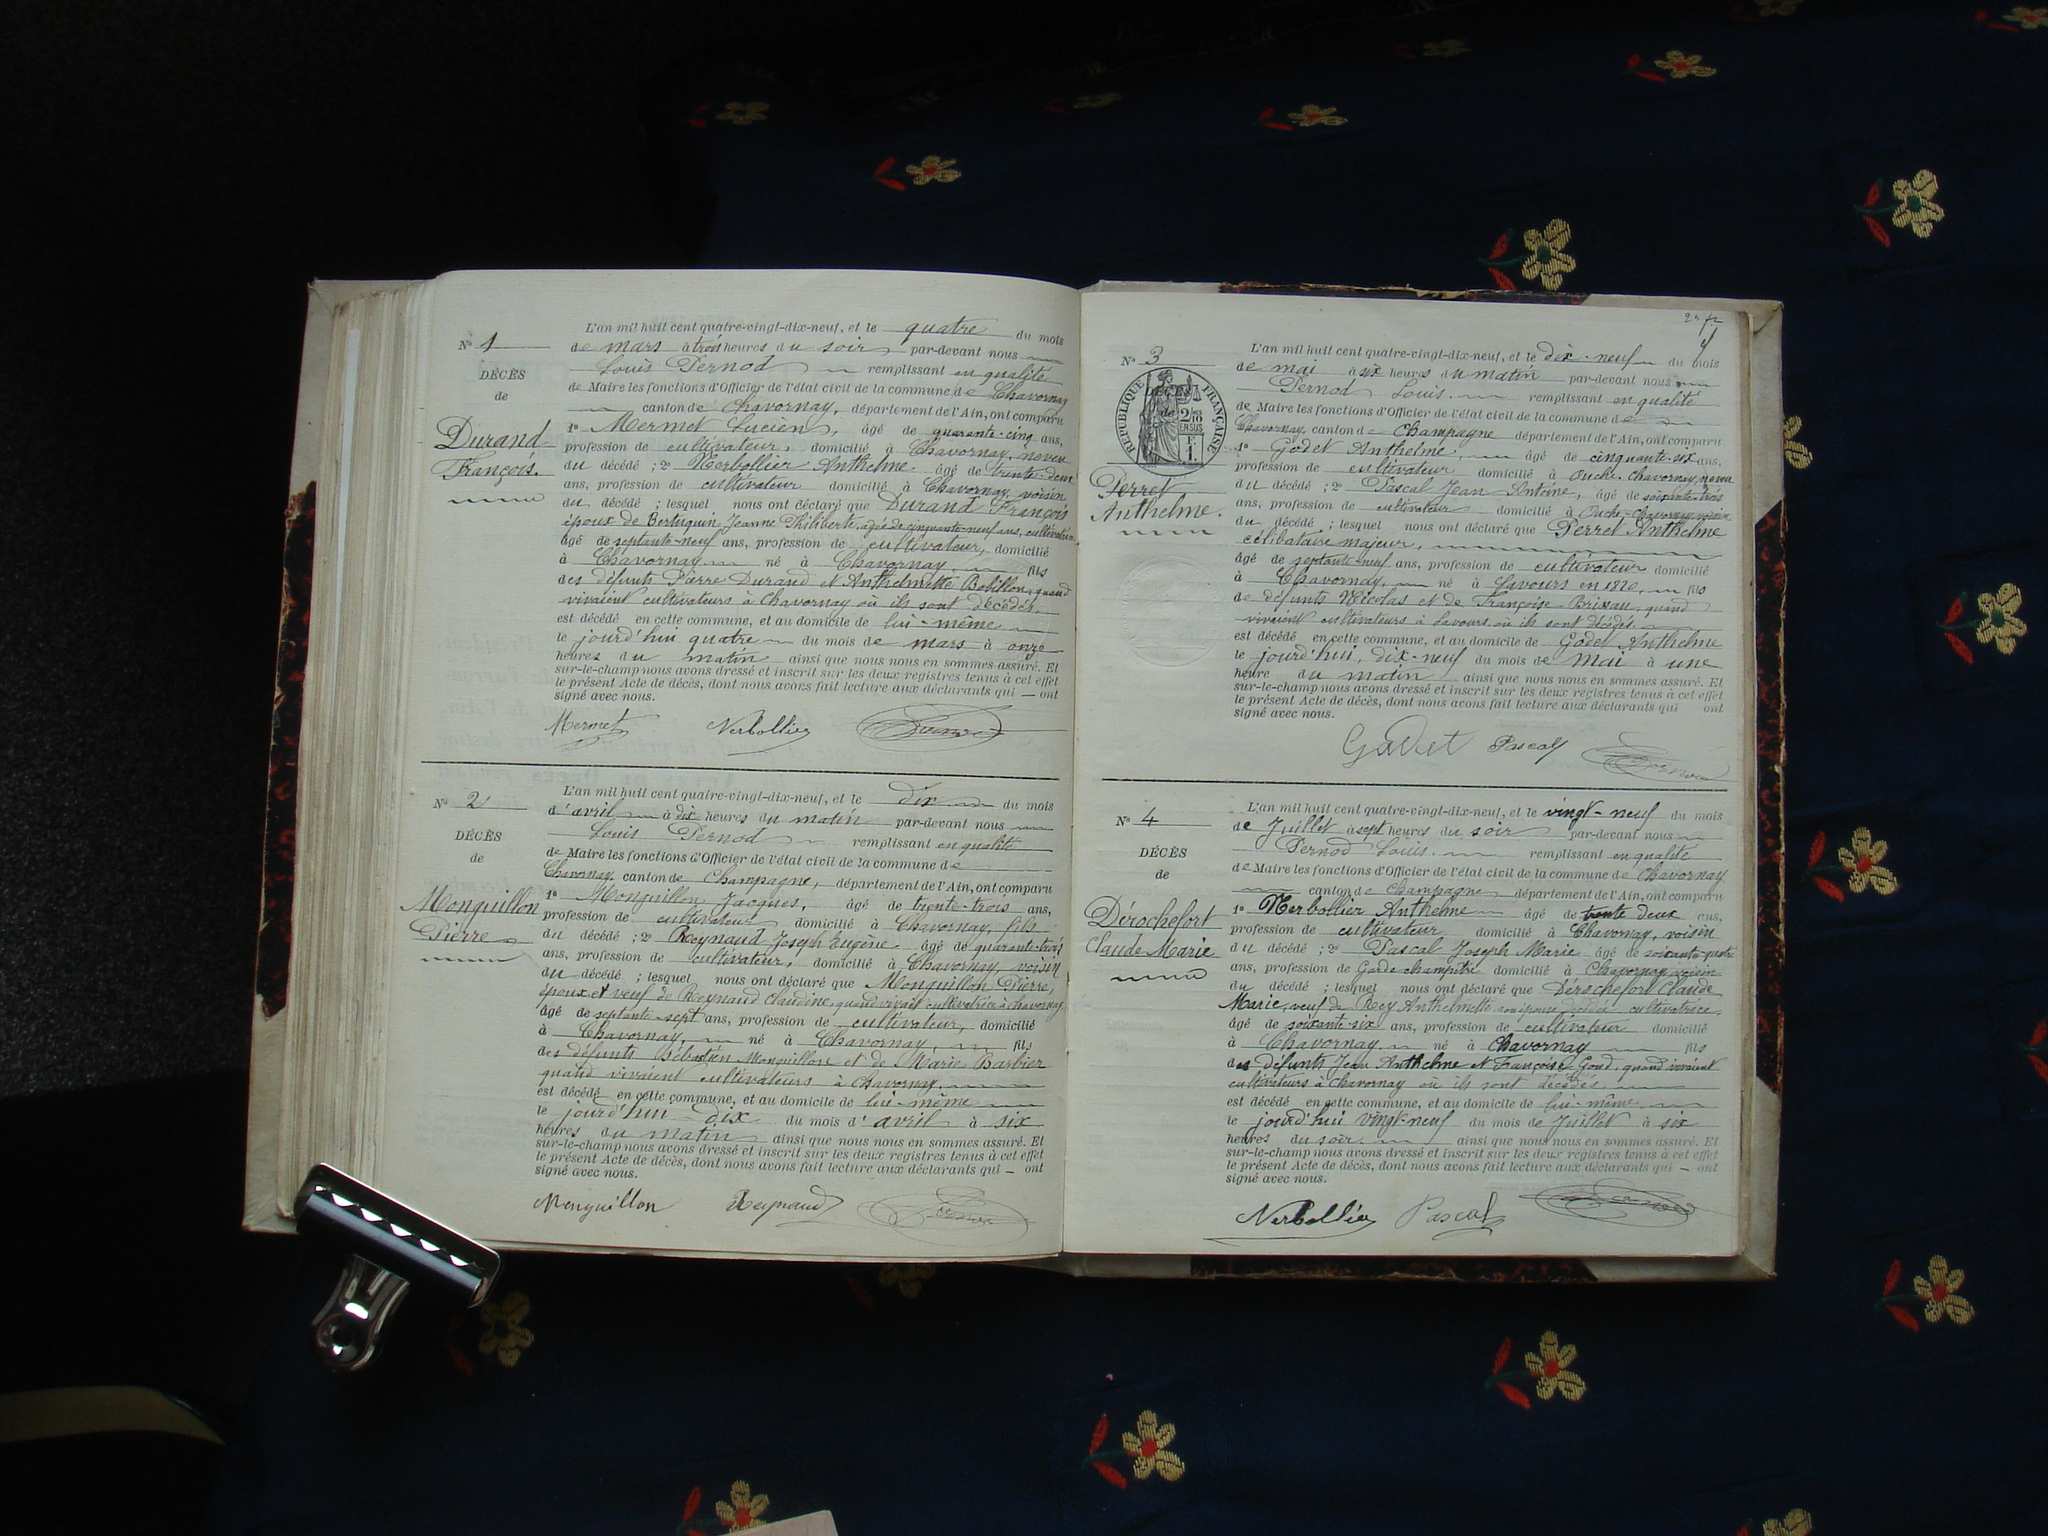 N° 1
DÉCÈS
de
Durand
François.
L'an mil huit cent quatre-vingt-dix-neuf, et le quatre du mois
de mars à trois heures du soir par-devant nous
Louis Pernod remplissant en qualité
de Maire les fonctions d'Officier de l'état civil de la commune de Chavornay
canton de Chavornay, département de l'Ain, ont comparu
1° Mermet Lucien, âgé de quarante-cinq ans,
profession de cultivateur, domicilié à Chavornay, neveu
du décédé ; 2° Nerbollier Anthelme âgé de trente-deux
ans, profession de cultivateur domicilié à Chavornay, voisin
du décédé ; lesquel nous ont déclaré que Durand François
époux de Jeanne Philiberte, agée de cinquante-neuf ans,
âgé de septante-neuf ans, profession de cultivateur, domicilié
à Chavornay né à Chavornay fils
des défunts Pierre Durand et Anthelmette quand
vivaient cultivateurs à Chavornay où ils sont décédés,
est décédé en cette commune, et au domicile de lui-même
le jourd'hui quatre du mois de mars à onze
heures du matin ainsi que nous nous en sommes assuré. Et
sur-le-champ nous avons dressé et inscrit sur les deux registres tenus à cet effet
le présent Acte de décès, dont nous avons fait lecture aux déclarants qui — ont
signé avec nous.
Mermet Nerbollier
N° 2
DÉCÈS
de
Monguillon
Pierre
L'an mil huit cent quatre-vingt-dix-neuf, et le dix du mois
d'avril à dix heures du matin par-devant nous
Louis Pernod remplissant en qualité
de Maire les fonctions d'Officier de l'état civil de la commune de
Chavornay, canton de Champagne, département de l'Ain, ont comparu
1° Monguillon Jacques, âgé de trente-trois ans,
profession de cultivateur domicilié à Chavornay, fils
du décédé ; 2° Reynaud Joseph Eugène âgé de quarante-trois
ans, profession de cultivateur, domicilié à Chavornay, voisin
du décédé ; lesquel nous ont déclaré que Monguillon Pierre,
époux et veuf de Reynaud Claudine, quand vivait cultivatrice à Chavornay,
âgé de septante-sept ans, profession de cultivateur, domicilié
à Chavornay, né à Chavornay, fils
des défunts Sébastien Monguillon et de Marie Barbier
quand vivaient cultivateurs à Chavornay,
est décédé en cette commune, et au domicile de lui-même
le jourd'hui dix du mois d'avril à six
heures du matin ainsi que nous nous en sommes assuré. Et
sur-le-champ nous avons dressé et inscrit sur les deux registres tenus à cet effet
le présent Acte de décès, dont nous avons fait lecture aux déclarants qui — ont
signé avec nous.
Monguillon Reynaud
N° 3
RÉPUBLIQUE FRANÇAISE
DÉCÈS
de
2/10 EN SUS
Perret
Anthelme.
L'an mil huit cent quatre-vingt-dix-neuf, et le dix-neuf du mois
de mai à six heures du matin par-devant nous
Pernod Louis. remplissant en qualité
de Maire les fonctions d'Officier de l'état civil de la commune de
Chavornay, canton de Champagne département de l'Ain, ont comparu
1° Godet Anthelme, âgé de cinquante-six ans,
profession de cultivateur domicilié à Ouche-Chavornay, neveu
du décédé ; 2° Pascal Jean Antoine, âgé de soixante-trois
ans, profession de cultivateur domicilié à Ouche-Chavornay, voisin
du décédé ; lesquel nous ont déclaré que Perret Anthelme
célibataire majeur,
âgé de septante-neuf ans, profession de cultivateur domicilié
à Chavornay, né à Lavours en 1820, fils
de défunts Nicolas et de Françoise quand
vivaient cultivateurs à Lavours où ils sont décédés.
est décédé en cette commune, et au domicile de Godet Anthelme
le jourd'hui, dix-neuf du mois de mai à une
heure du matin ainsi que nous nous en sommes assuré. Et
sur-le-champ nous avons dressé et inscrit sur les deux registres tenus à cet effet
le présent Acte de décès, dont nous avons fait lecture aux déclarants qui ont
signé avec nous.
Pascal
N° 4
DÉCÈS
de
Dérochefort
Claude Marie
L'an mil huit cent quatre-vingt-dix-neuf, et le vingt-neuf du mois
de Juillet à sept heures du soir par-devant nous
Pernod Louis. remplissant en qualité
de Maire les fonctions d'Officier de l'état civil de la commune de Chavornay
canton de Champagne département de l'Ain, ont comparu
1° Nerbollier Anthelme âgé de trente deux ans,
profession de cultivateur domicilié à Chavornay, voisin
du décédé ; 2° Pascal Joseph Marie âgé de soixante-quatre
ans, profession de Garde champêtre domicilié à Chavornay voisin
du décédé ; lesquel nous ont déclaré que Dérochefort Claude
Marie, veuf de Rey Anthelmette son épouse décédée cultivatrice,
âgé de soixante-six ans, profession de cultivateur domicilié
à Chavornay né à Chavornay fils
des défunts Jean Anthelme et Françoise quand vivaient
cultivateurs à Chavornay où ils sont décédés
est décédé en cette commune, et au domicile de lui-même
le jourd'hui vingt-neuf du mois de Juillet à six
heures du soir ainsi que nous nous en sommes assuré. Et
sur-le-champ nous avons dressé et inscrit sur les deux registres tenus à cet effet
le présent Acte de décès, dont nous avons fait lecture aux déclarants qui — ont
signé avec nous.
Nerbollier Pascal